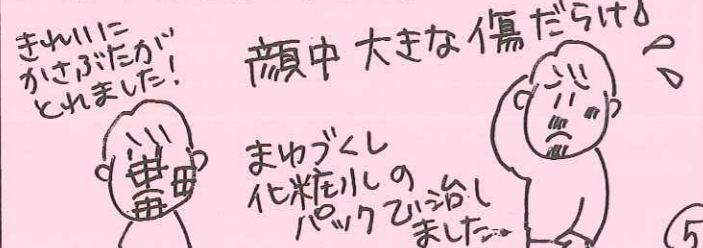 きれいに
かさぶたが
とれました!
顔中 大きな傷だらけ
まゆづくし
化粧水の
パックで治し
ました
5